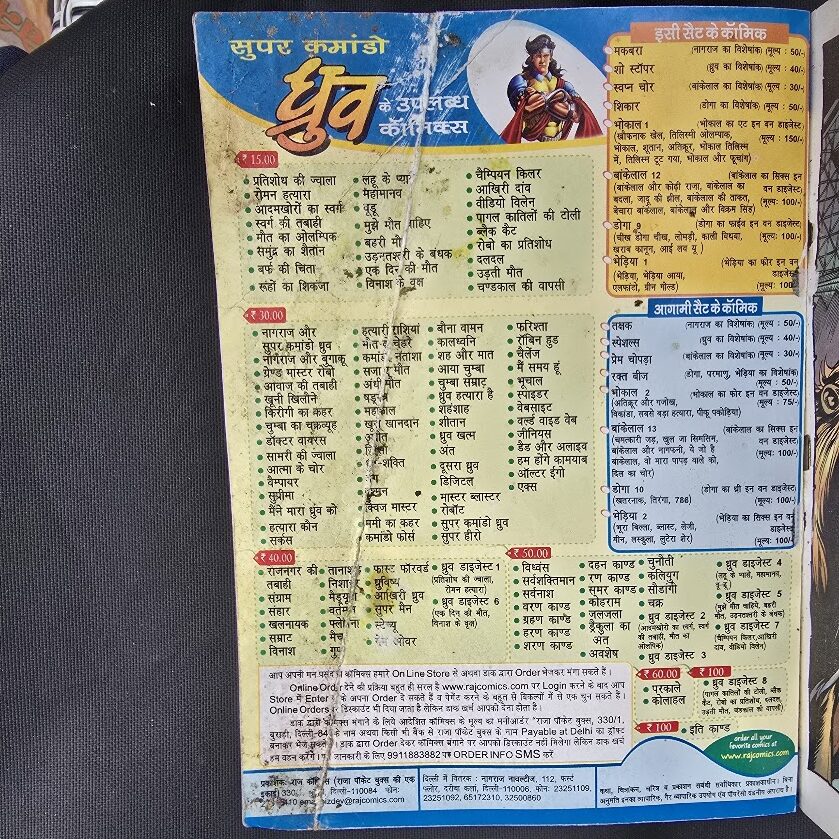 सुपर कमांडो
ध्रुव के उपलब्ध
कॉमिक्स
₹ 15.00
प्रतिशोध की ज्वाला
रोमन हत्यारा
आदमखोरों का स्वर्ग
स्वर्ग की तबाही
मौत का ओलम्पिक
समुद्र का शैतान
बर्फ की चिता
रूहों का शिकंजा
लहू के प्यासे
महामानव
वूडू
मुझे मौत चाहिए
बहरी मौत
उड़नतश्तरी के बंधक
एक दिन की मौत
विनाश के वृक्ष
चैम्पियन किलर
आखिरी दांव
वीडियो विलेन
पागल कातिलों की टोली
ब्लैक कैट
रोबो का प्रतिशोध
दलदल
उड़ती मौत
चण्डकाल की वापसी
₹ 30.00
नागराज और
सुपर कमान्डो ध्रुव
नागराज और बुगाकू
ग्रेण्ड मास्टर रोबो
आवाज की तबाही
खूनी खिलौने
किरीगी का कहर
चुम्बा का चक्रव्यूह
डॉक्टर वायरस
सामरी की ज्वाला
आत्मा के चोर
वैम्पायर
सुप्रीमा
मैंने मारा ध्रुव को
हत्यारा कौन
सर्कस
हत्यारी राशियां
मौत के चेहरे
अंधी मौत
महाकाल
खूनी खानदान
अतीत
क्विज मास्टर
ममी का कहर
कमांडो फोर्स
बौना वामन
कालध्वनि
शह और मात
आया चुम्बा
चुम्बा सम्राट
ध्रुव हत्यारा है
शहंशाह
शैतान
ध्रुव खत्म
अंत
दूसरा ध्रुव
डिजिटल
मास्टर ब्लास्टर
रोबॉट
सुपर कमांडो ध्रुव
सुपर हीरो
फरिश्ता
रॉबिन हुड
चैलेंज
मैं समय हूं
भूचाल
स्पाइडर
वेबसाइट
वर्ल्ड वाइड वेब
जीनियस
डैड और अलाइव
हम होंगे कामयाब
ऑल्टर ईगो
एक्स
₹ 40.00
राजनगर की
तबाही
संग्राम
संहार
खलनायक
सम्राट
विनाश
फास्ट फॉरवर्ड
ध्रुविष्य
आखिरी ध्रुव
सुपर मैन
स्टेच्यू
गेम ओवर
ध्रुव डाइजेस्ट 1
(प्रतिशोध की ज्वाला,
रोमन हत्यारा)
ध्रुव डाइजेस्ट 6
(एक दिन की मौत,
विनाश के वृक्ष)
₹ 50.00
विध्वंस
सर्वशक्तिमान
सर्वनाश
वरण काण्ड
ग्रहण काण्ड
हरण काण्ड
शरण काण्ड
दहन काण्ड
रण काण्ड
समर काण्ड
कोहराम
जलजला
ड्रैकुला का
अंत
अवशेष
चुनौती
कलियुग
सोडांगी
चक्र
ध्रुव डाइजेस्ट 2
(आदमखोरों का स्वर्ग, स्वर्ग
की तबाही, मौत का
ओलंपिक)
ध्रुव डाइजेस्ट 3
ध्रुव डाइजेस्ट 4
(लहू के प्यासे, महामानव,
वूडू)
ध्रुव डाइजेस्ट 5
(मुझे मौत चाहिये, बहरी
मौत, उड़नतश्तरी के बंधक)
ध्रुव डाइजेस्ट 7
(चैम्पियन किलर, आखिरी
दांव, वीडियो विलेन)
₹ 60.00
परकाले
कोलाहल
₹ 100
ध्रुव डाइजेस्ट 8
(पागल कातिलों की टोली, ब्लैक
कैट, रोबो का प्रतिशोध, दलदल,
उड़ती मौत, चंडकाल की वापसी)
₹ 100
इति काण्ड
इसी सैट के कॉमिक
मकबरा (नागराज का विशेषांक) (मूल्य : 50/-)
शो स्टॉपर (ध्रुव का विशेषांक) (मूल्य : 40/-)
स्वप्न चोर (बांकेलाल का विशेषांक) (मूल्य : 30/-)
शिकार (डोगा का विशेषांक) (मूल्य : 50/-)
भोकाल 1 (भोकाल का एट इन वन डाइजेस्ट)
(खौफनाक खेल, तिलिस्मी ओलम्पाक, (मूल्य : 150/-)
भोकाल, शूतान, अतिक्रूर, भोकाल तिलिस्म
में, तिलिस्म टूट गया, भोकाल और फूचांग)
बांकेलाल 12 (बांकेलाल का सिक्स इन
(बांकेलाल और कोढ़ी राजा, बांकेलाल का वन डाइजेस्ट)
बदला, जादू की झील, बांकेलाल की ताकत, (मूल्य: 100/-)
बेचारा बांकेलाल, बांकेलाल और विक्रम सिंह)
डोगा 9 (डोगा का फाईव इन वन डाइजेस्ट)
(चीख डोगा चीख, लोमड़ी, काली विधवा, (मूल्य: 100/-)
खराब कानून, आई लव यू)
भेड़िया 1 (भेड़िया का फोर इन वन
(भेड़िया, भेड़िया आया, डाइजेस्ट)
एलफांटो, ग्रीन गोल्ड) (मूल्य: 100
आगामी सैट के कॉमिक
तक्षक (नागराज का विशेषांक) (मूल्य : 50/-)
स्पेशल्स (ध्रुव का विशेषांक) (मूल्य : 40/-)
प्रेम चोपड़ा (बांकेलाल का विशेषांक) (मूल्य : 30/-)
रक्त बीज (डोगा, परमाणु, भेड़िया का विशेषांक)
(मूल्य : 50/-)
भोकाल 2 (भोकाल का फोर इन वन डाइजेस्ट)
(अतिक्रूर और गजोख, (मूल्य : 75/-)
विकांडा, सबसे बड़ा हत्यारा, पीकू पकोड़िया)
बांकेलाल 13 (बांकेलाल का सिक्स इन
(चमत्कारी जड़, खुल जा सिमसिम, वन डाइजेस्ट)
बांकेलाल और नागफनी, ये जो है (मूल्य: 100/-)
बांकेलाल, वो मारा पापड़ वाले को,
दिल का चोर)
डोगा 10 (डोगा का थ्री इन वन डाइजेस्ट)
(खतरनाक, तिरंगा, 786) (मूल्य: 100/-)
भेड़िया 2 (भेड़िया का सिक्स इन वन
(भूरा बिल्ला, ब्लास्ट, लेजी, डाइजेस्ट)
गीन, लस्कुला, लुटेरा शेर) (मूल्य: 100/-)
आप अपनी मन पसंद कॉमिक्स हमारे On Line Store से अथवा डाक द्वारा Order भेजकर मंगा सकते हैं।
Online Order देने की प्रक्रिया बहुत ही सरल है www.rajcomics.com पर Login करने के बाद आप
Store में Enter के अपना Order दे सकते हैं व पेमेंट करने के बहुत से विकल्पों में से एक चुन सकते हैं।
Online Orders पर डिस्काउंट भी दिया जाता है लेकिन डाक खर्च आपको देना होता है।
डाक द्वारा कॉमिक्स मंगाने के लिए आदेशित कॉमिक्स के मूल्य का मनीआर्डर "राजा पॉकेट बुक्स, 330/1,
बुराड़ी, दिल्ली-84 के नाम अथवा किसी भी बैंक से राजा पॉकेट बुक्स के नाम Payable at Delhi का ड्रॉफ्ट
बनाकर भेज सकते हैं। डाक द्वारा Order देकर कॉमिक्स मंगाने पर आपको डिस्काउंट नहीं मिलेगा लेकिन डाक खर्च
हम वहन करेंगे। जानकारी के लिए 9911883882 पर ORDER INFO SMS करें
order all your
favorite comics at
www.rajcomics.com
प्रकाशक: राज कॉमिक्स (राजा पॉकेट बुक्स की एक
इकाई) 330, दिल्ली-110084 फोन:
दिल्ली में वितरक : नागराज नावल्टीज, 112, फर्स्ट
फ्लोर, दरीबा कलां, दिल्ली-110006. फोन: 23251109,
23251092, 65172310, 32500860
कथा, चित्रांकन, चरित्र व प्रकाशन संबंधी सर्वाधिकार प्रकाशकाधीन। बिना
अनुमति इनका व्यापारिक, गैर व्यापारिक उपयोग एवं पॉयरेसी दंडनीय अपराध है।